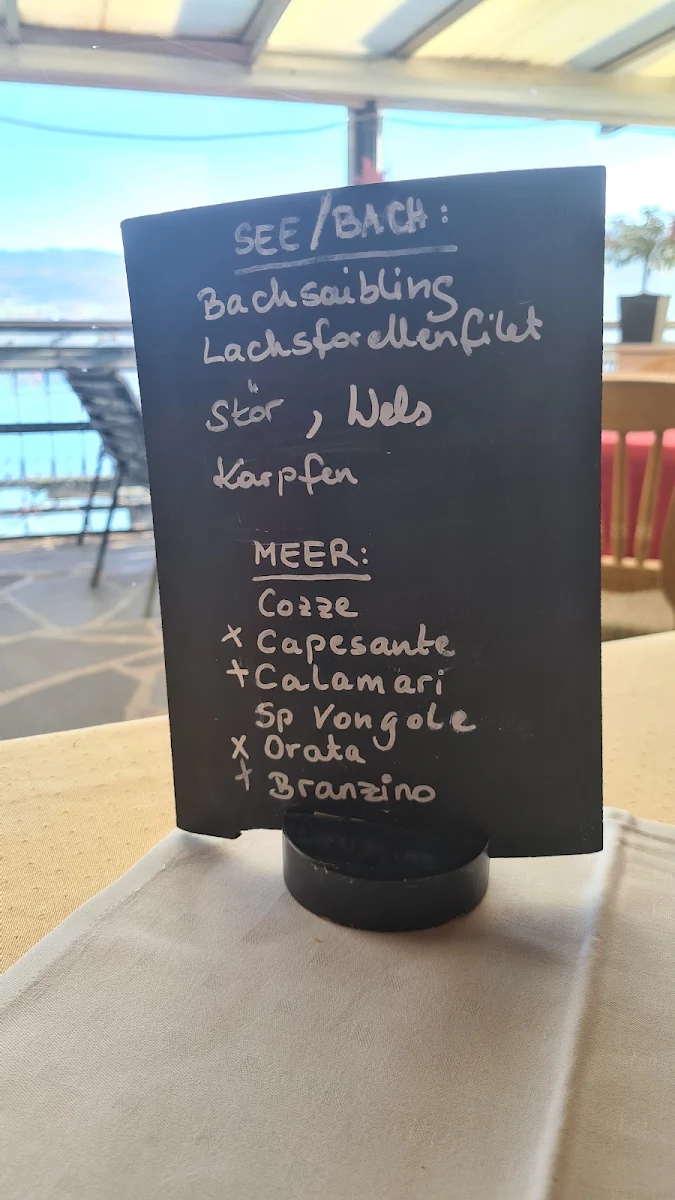 SEE/BACH:
Bachsaibling
Lachsforellenfilet
Stör, Wels
Karpfen
MEER:
Cozze
x Capesante
+ Calamari
Sp Vongole
x Orata
+ Branzino